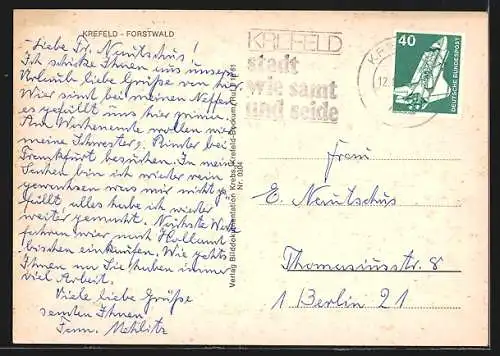 KREFELD - FORSTWALD
Liebe Fr. Neutschus!
Ich schicke Ihnen aus unserem
Urlaub liebe Grüße von hier
Wir sind bei meinem Neffen
es gefällt uns hier prima.
Am Wochenende wollen wir
meine Schwester, Kinder bei
Frankfurt besuchen. In meine
Sachen bin ich wieder rein
gewachsen was mir nicht ge-
fällt, alles habe ich wieder
weiter gemacht. Nächste Woche
fahren wir nach Holland
bischen einkaufen. Wie gehts
Ihnen na Sie haben immer
viel Arbeit.
Viele liebe Grüße
senden Ihnen
Fam. Mehlitz
Verlag Bilddokumentation Krebs, Krefeld-Bockum
Nr. 0004
KREFELD
stadt
wie samt
und seide
12.
40
DEUTSCHE BUNDESPOST
Frau
E. Neutschus
Thomasiusstr. 8
1 Berlin 21